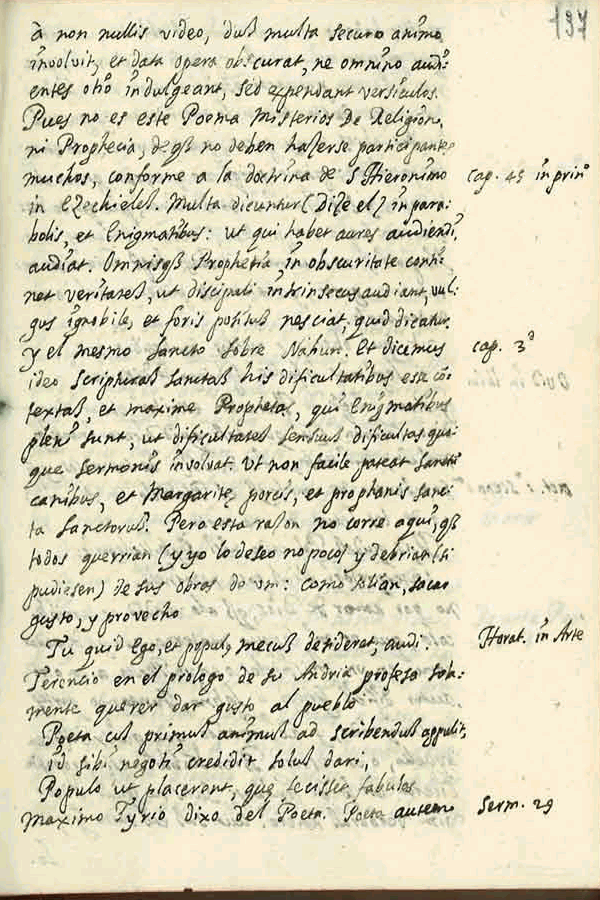 197
à non nullis video, dum multa securo animo
involvit, et data opera obscurat, ne omnino audi-
entes otio indulgeant, sed expendant versiculos.
Pues no es este Poema Misterios de Religion,
ni Prophecia, de q̃ no deben hazerse participantes
muchos, conforme a la doctrina de S Hieronimo
cap. 45 in prin°
in Ezechielem. Multa dicuntur (Dize el) in para-
bolis, et Enigmatibus: ut qui habet aures audiendi,
audiat. Omnisq3 Prophetia in obscuritate conti-
net veritatem, ut discipuli intrinsecus audiant, vul-
gus ignobile, et foris positum nesciat, quid dicatur.
y el mesmo sancto sobre Nahun. Et dicemus
cap. 3°
ideo scripturas sanctas his dificultatibus esse cõ-
textas, et maxime Prophetas, qui Enigmatibus
pleni sunt, ut dificultatem sensuum dificultas quo-
que sermonis involvat. Ut non facile pateat sanctũ
canibus, et Margaritę porcis, et prophanis sanc-
ta sanctorum. Pero esta razon no corre aqui, q̃
todos querrian (y yo lo deseo no poco) y debrian (si
pudiesen) de sus obras de vm: como solian, sacar
gusto, y provecho
Tu quid Ego, et populus mecum desiderat, audi.
Horat. in Arte
Terencio en el prologo de su Andria profesa sola-
mente querer dar gusto al pueblo
Poeta cum primum animum ad scribendum appulit,
id sibi negoti credidit solum dari,
Populo ut placerent, quas fecisset fabulas
Maximo Tyrio dixo del Poeta. Poeta autem
Serm. 29